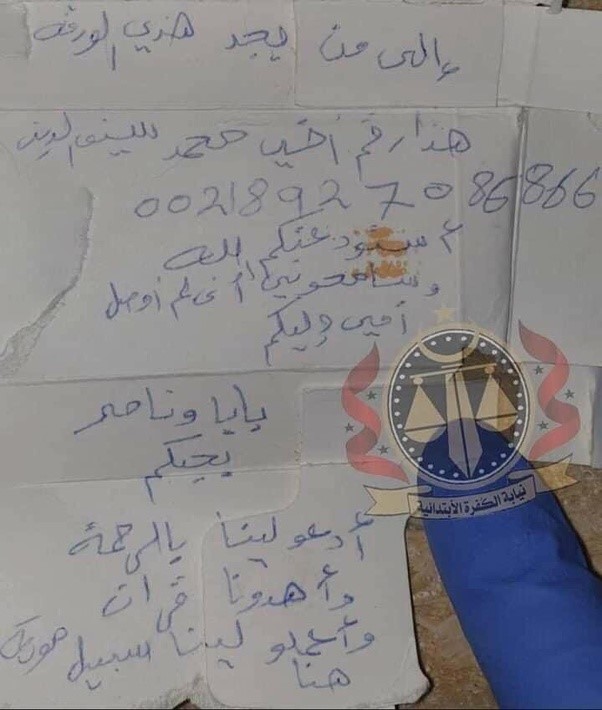 وإلى من يجد هذي الورقه
هذا رقم أخي محمد سيف الدين
00218927086866
أستودعتكم الله
وسامحوني أنى لم أوصل
أمي إليكم
بابا وناصر
يحبكم
أدعو لينا بالرحمة
وأهدونا قرأن
وأعملو لينا سبيل
هنا
نيابة الكفرة الأبتدائية